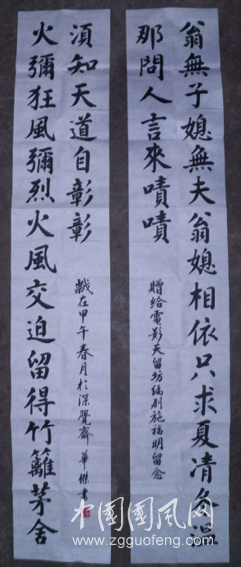 翁無子媳無夫翁媳相依只求夏凊冬溫
那問人言來嘖嘖
贈給電影天留坊編劇施福明留念
火彌狂風彌烈火風交迫留得竹籬茅舍
須知天道自彰彰
歲在甲午春月於深覺齋 華傑書
中国国风网
www.zgguofeng.com